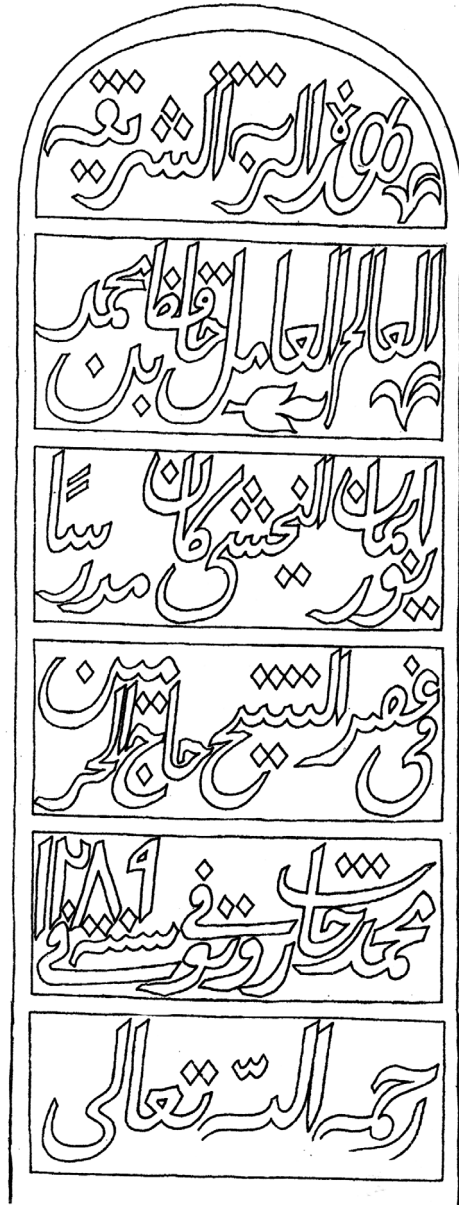 هذه التربة الشريفة
العالم العامل حافظ محمد بن
ايمان كان مدرسا
فى عصر الشيخ حاج الحرمين
محمد توفى فى سنة ١٢٨٩
رحمه الله تعالى